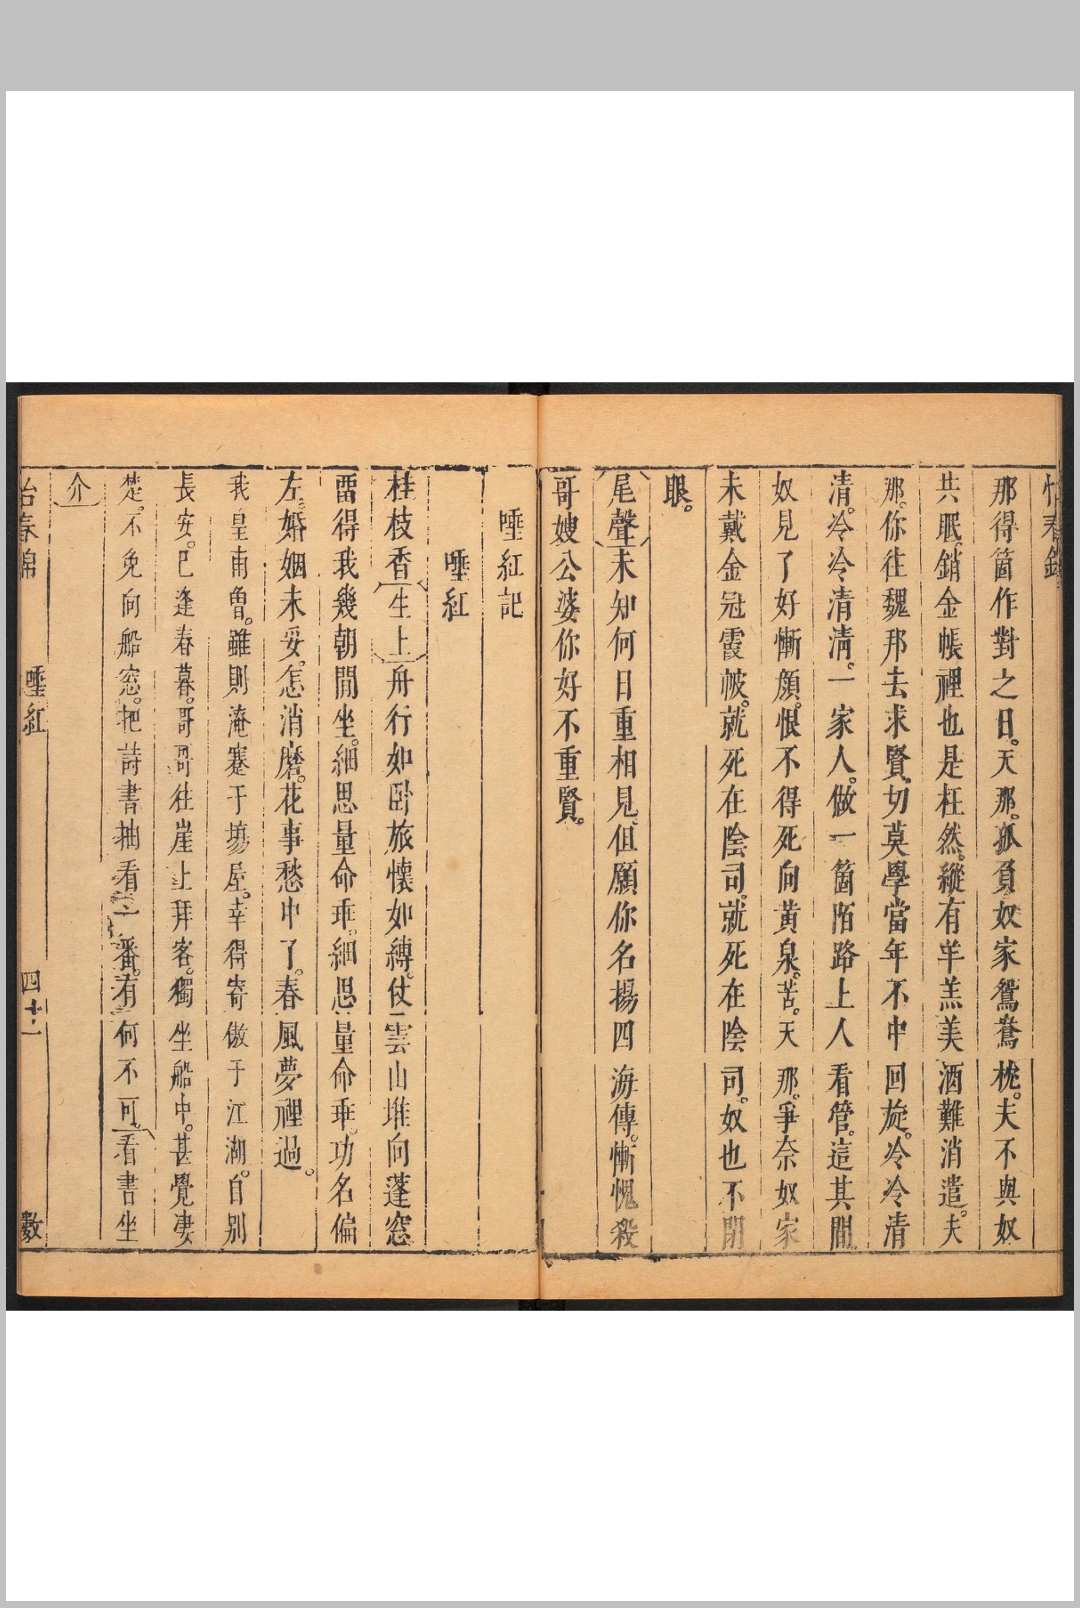 怡春錦
那得箇作對之日。天那。孤負奴家鴛鴦枕。夫不與奴
共眠。銷金帳裡也是枉然。縱有羊羔美酒難消遣。夫
那。你往魏邦去求賢。切莫學當年不中回旋。冷冷清
清。冷冷清清。一家人。做一箇陌路上人看管。這其間
奴見了好慚顔。恨不得死向黃泉。苦。天那。爭奈奴家
未戴金冠霞帔。就死在陰司。就死在陰司。奴也不閉
眼。
尾聲未知何日重相見。但願你名揚四海傳。慚愧殺
哥嫂公婆你好不重賢。
唾紅記
唾紅
桂枝香生上舟行如臥。旅懷如縛。仗雲山堆向蓬窓
畱得我幾朝閒坐。細思量命乖。細思量命乖。功名偏
左。婚姻未妥。怎消磨。花事愁中了。春風夢裡過。
我皇甫曾。雖則淹蹇于塲屋。幸得寄傲于江湖。自别
長安。已逢春暮。哥哥往崖上拜客。獨坐船中。甚覺凄
楚。不免向船窓。把詩書抽看一番。有何不可。看書坐
介
怡春錦 唾紅 四十二 數